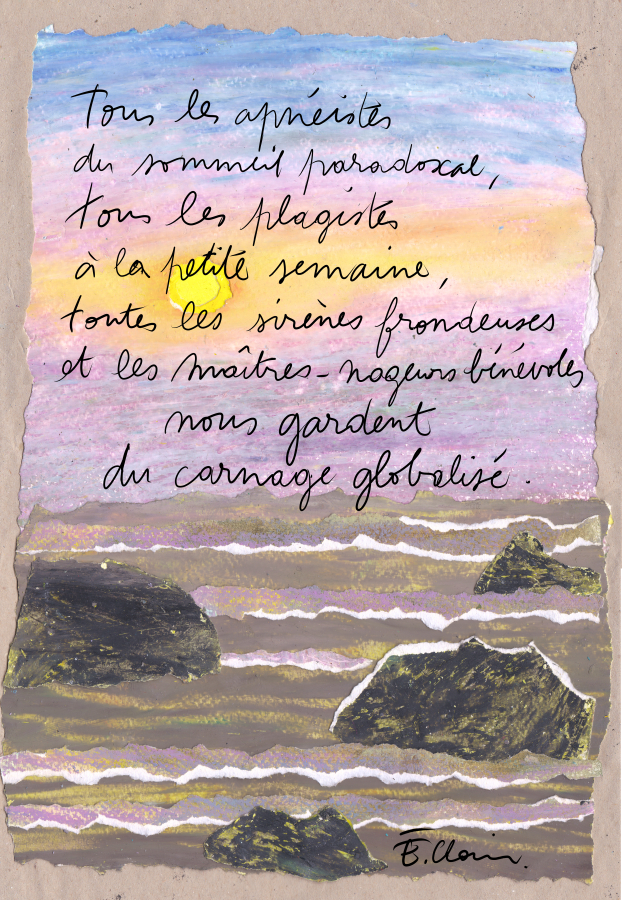 Tous les apnéistes
du sommeil paradoxal,
tous les plagistes
à la petite semaine,
toutes les sirènes frondeuses
et les maîtres-nageurs bénévoles
nous gardent
du carnage globalisé.
E. Clain.